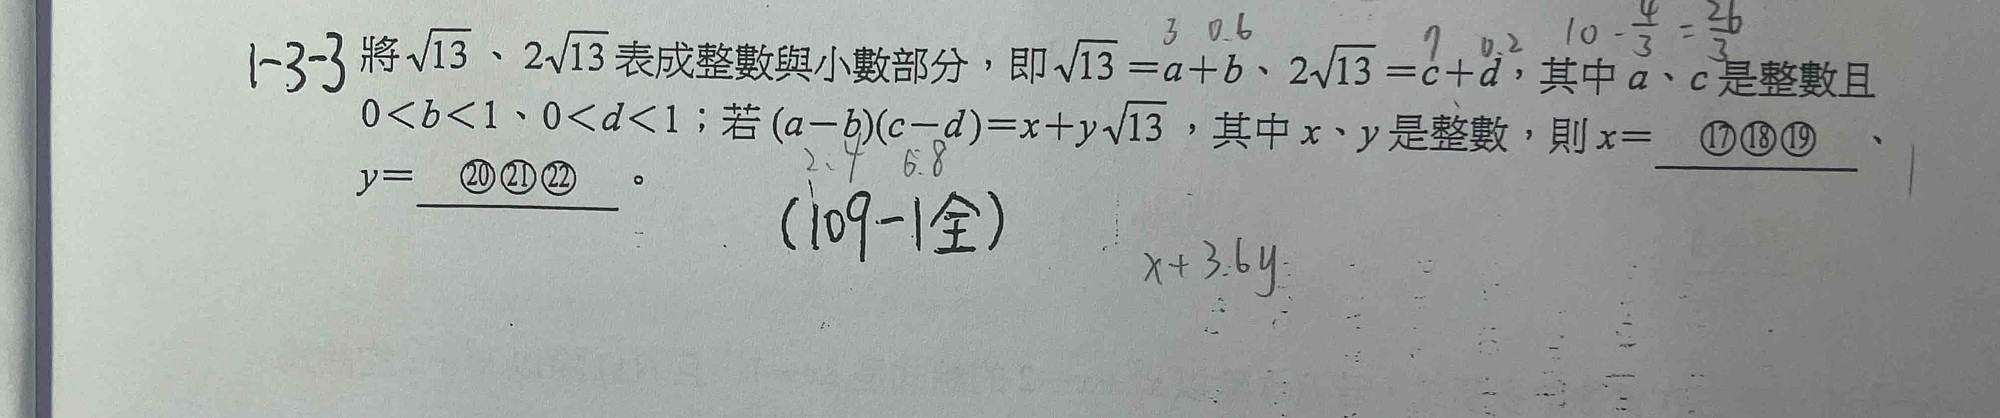 3 0.6 7 0.2 10 - 4/3 = 26/3
1-3-3 將√13、2√13表成整數與小數部分，即√13=a+b、2√13=c+d，其中a、c是整數且
0<b<1、0<d<1；若(a-b)(c-d)=x+y√13，其中x、y是整數，則x= ⑰⑱⑲ 、
2.4 6.8
y= ⑳㉑㉒ 。
(109-1全)
x+3.6y